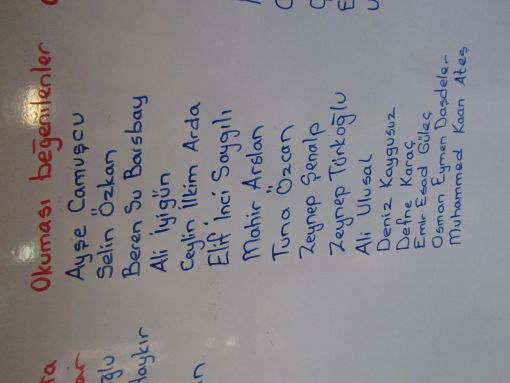 Okuması beğenilenler
Ayşe Camuşcu
Selin Özkan
Beren Su Barsbay
Ali İyigün
Ceylin İlkim Arda
Elif İnci Saygılı
Mahir Arslan
Tuna Özcan
Zeynep Şenalp
Zeynep Türkoğlu
Ali Ulusal
Deniz Kaygusuz
Defne Karaç
Emir Esad Güleç
Osman Eymen Daşdeler
Muhammed Kaan Ateş